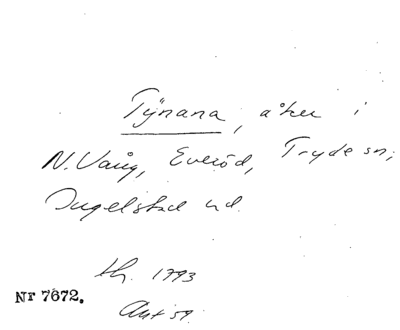 Tÿnana, åker i
N. Vång, Everöd, Tryde sn,
Ingelstad hd.
th. 1793
Nr 7672.
Ant 59